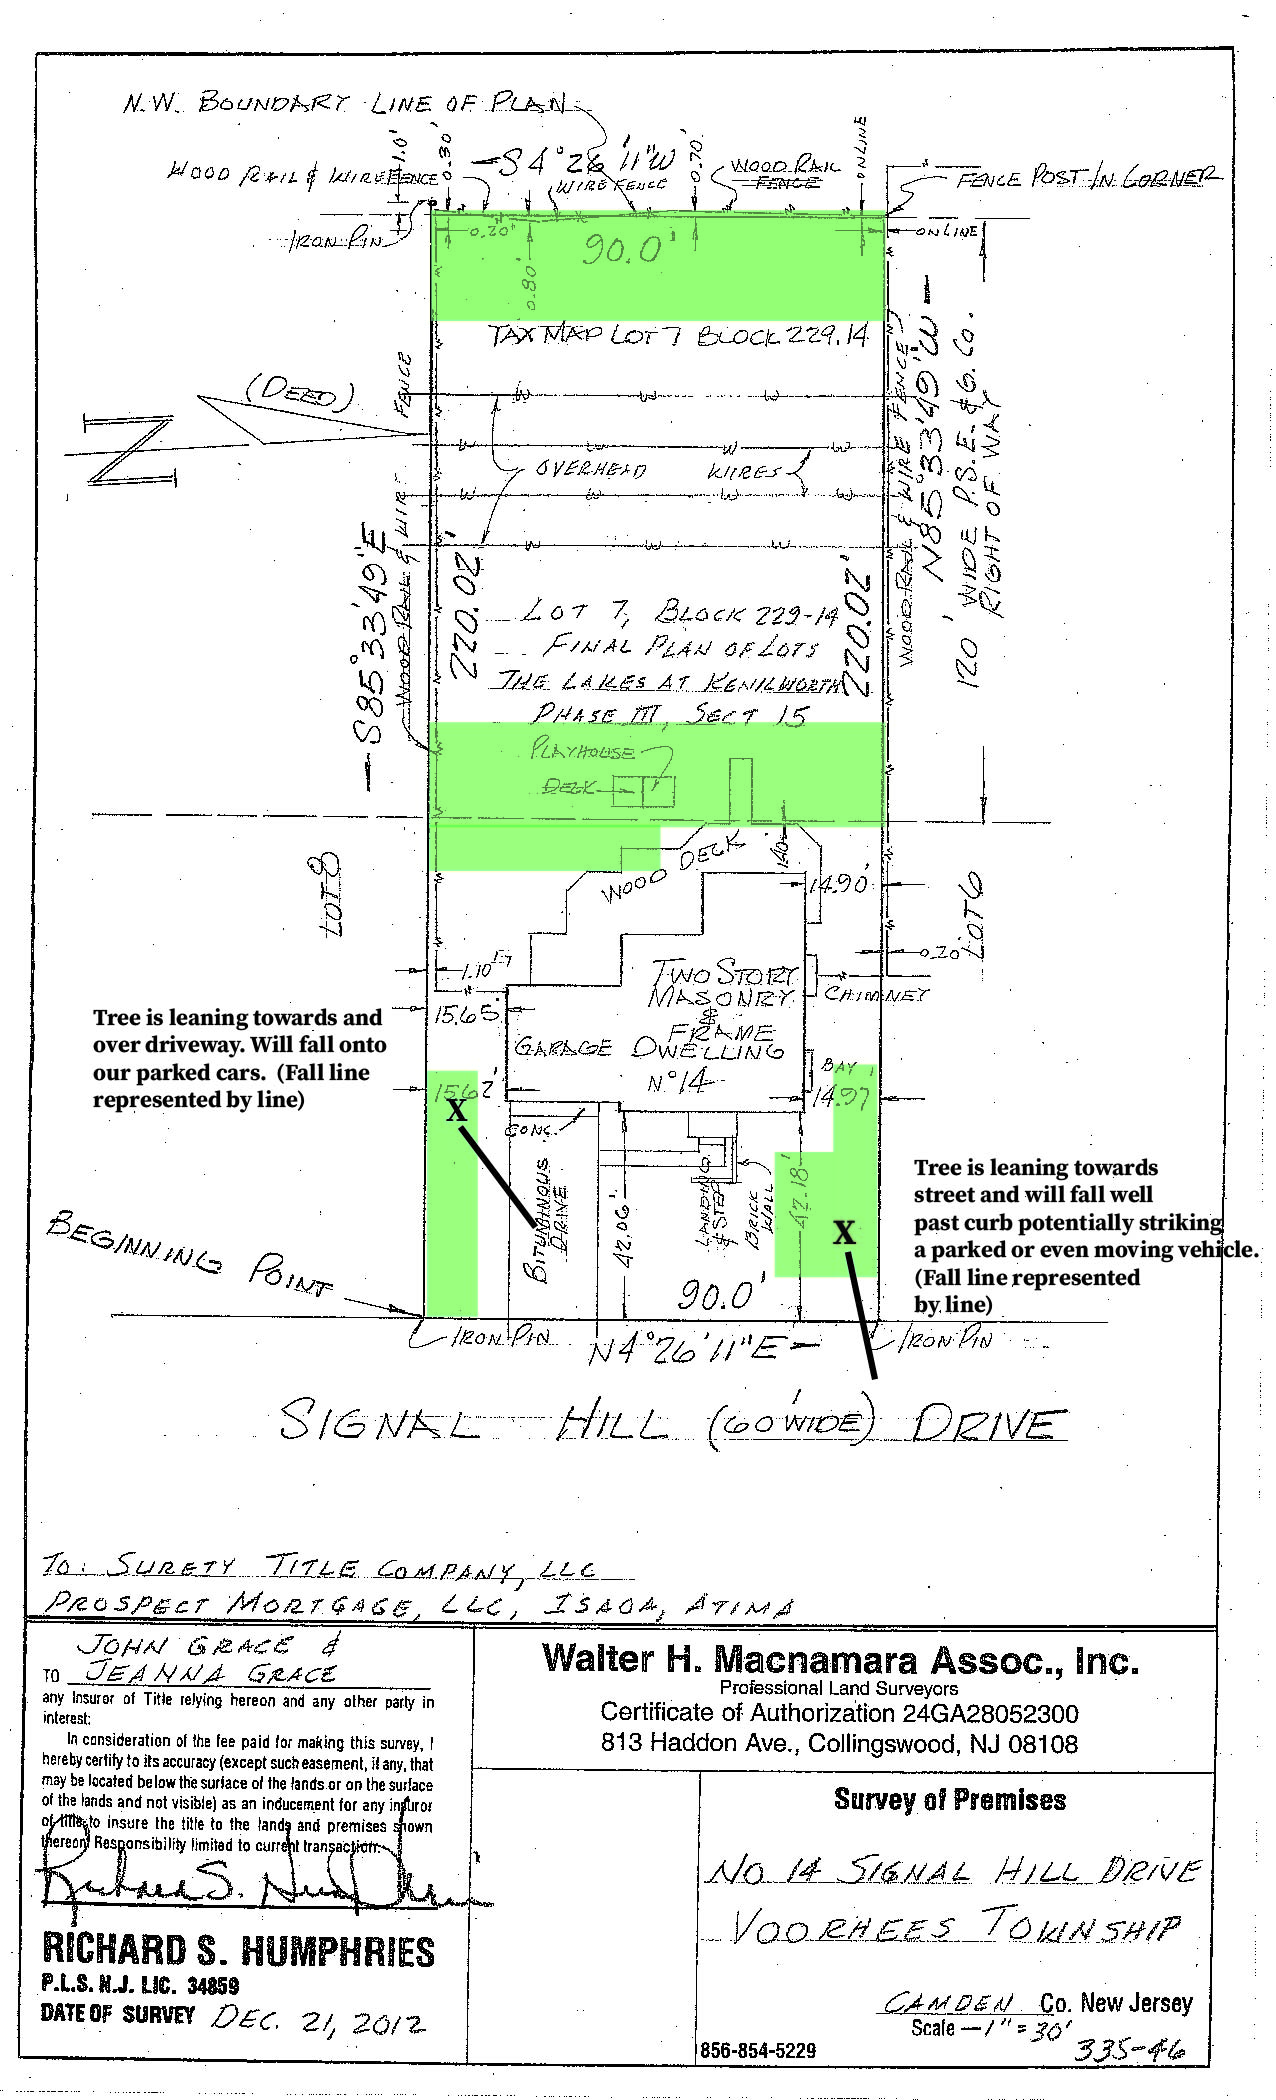 N.W. BOUNDARY LINE OF PLAN
1.0'
0.30'
S 4° 26' 11" W
0.70'
ON LINE
WOOD RAIL & WIRE FENCE
WIRE FENCE
WOOD RAIL
FENCE
FENCE POST IN CORNER
IRON PIN
0.20'
90.0'
ON LINE
0.80'
TAX MAP LOT 7 BLOCK 229.14
(DEED)
N
OVERHEAD WIRES
W W W
W W W W
W W W W
W W W
WOOD RAIL & WIRE FENCE
S85°33'49"E
220.02'
220.02'
WOOD RAIL & WIRE FENCE
N85°33'49"W
120' WIDE P.S.E. & G. CO.
RIGHT OF WAY
LOT 7, BLOCK 229-14
FINAL PLAN OF LOTS
THE LAKES AT KENILWORTH
PHASE III, SECT 15
PLAYHOUSE
DECK
WOOD DECK
140'
14.90'
LOT 8
LOT 6
0.20'
1.10'
TWO STORY
MASONRY
&
FRAME
DWELLING
Nº 14
CHIMNEY
15.65'
GARAGE
BAY
15.62'
14.97'
Tree is leaning towards and
over driveway. Will fall onto
our parked cars. (Fall line
represented by line)
X
CONC.
BITUMINOUS
DRIVE
42.06'
LANDING
& STEP
BRICK
WALL
42.18'
X
Tree is leaning towards
street and will fall well
past curb potentially striking
a parked or even moving vehicle.
(Fall line represented
by line)
BEGINNING POINT
90.0'
IRON PIN
N4°26'11"E
IRON PIN
SIGNAL HILL (60' WIDE) DRIVE
TO: SURETY TITLE COMPANY, LLC
PROSPECT MORTGAGE, LLC, ISAOA, ATIMA
JOHN GRACE &
TO JEANNA GRACE
any Insuror of Title relying hereon and any other party in
interest:
In consideration of the fee paid for making this survey, I
hereby certify to its accuracy (except such easement, if any, that
may be located below the surface of the lands or on the surface
of the lands and not visible) as an inducement for any insuror
of title to insure the title to the lands and premises shown
thereon. Responsibility limited to current transaction.
Richard S. Humphries
RICHARD S. HUMPHRIES
P.L.S. N.J. LIC. 34859
DATE OF SURVEY DEC. 21, 2012
Walter H. Macnamara Assoc., Inc.
Professional Land Surveyors
Certificate of Authorization 24GA28052300
813 Haddon Ave., Collingswood, NJ 08108
Survey of Premises
NO 14 SIGNAL HILL DRIVE
VOORHEES TOWNSHIP
CAMDEN Co. New Jersey
Scale — 1" = 30'
856-854-5229
335-46